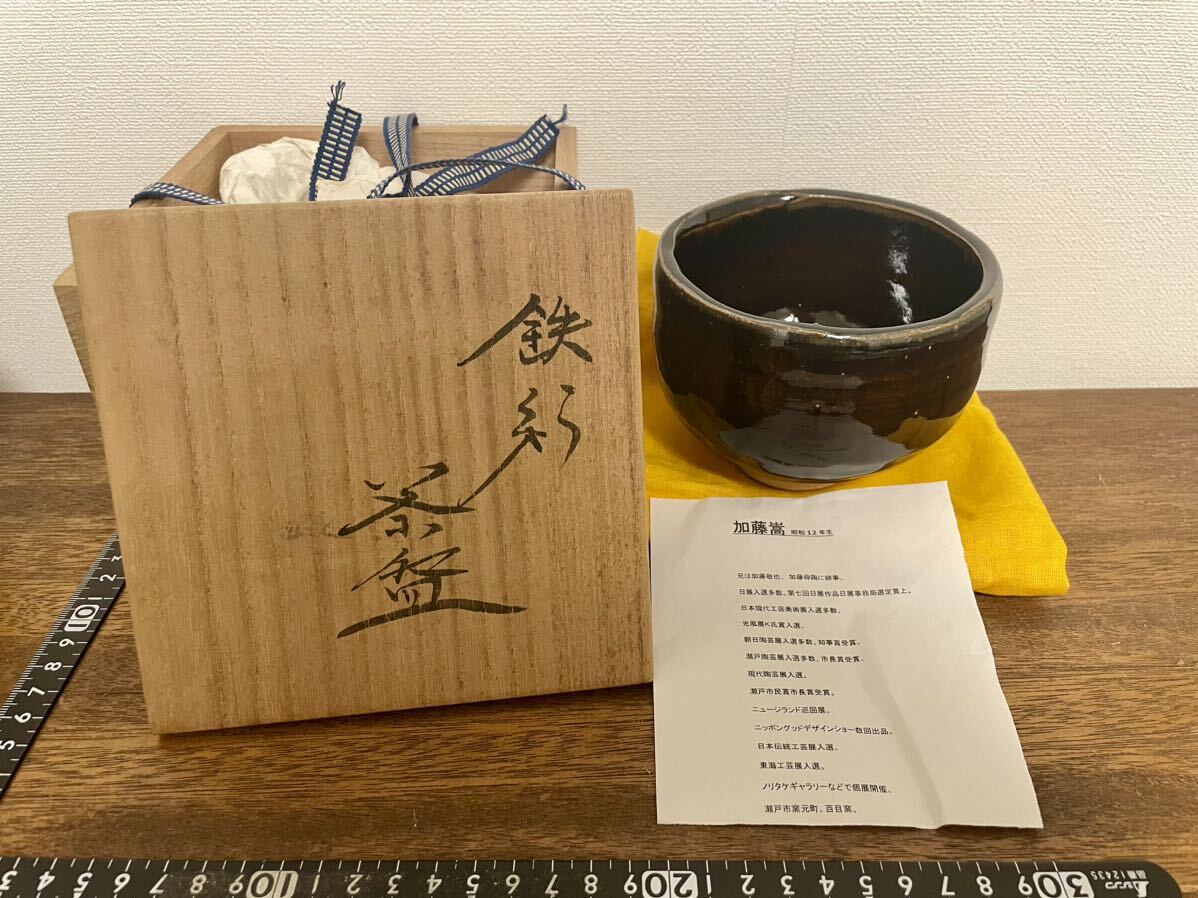 鉄彩
茶盌
加藤嵩 昭和12年生
兄は加藤敬也。加藤舜陶に師事。
日展入選多数、第七回日展作品日展事務局選定買上。
日本現代工芸美術展入選多数。
光風展K氏賞入選。
朝日陶芸展入選多数、知事賞受賞。
瀬戸陶芸展入選多数、市長賞受賞。
現代陶芸展入選。
瀬戸市民賞市長賞受賞。
ニュージランド巡回展。
ニッポングッドデザインショー数回出品。
日本伝統工芸展入選。
東海工芸展入選。
ノリタケギャラリーなどで個展開催。
瀬戸市窯元町。百目窯。
5 6 7 8 9 10 1 2 3
3 4 5 6 7 8 9 10 1 2 3 4 5 6 7 8 9 20 1 2 3 4 5 6 7 8 9 30
12435